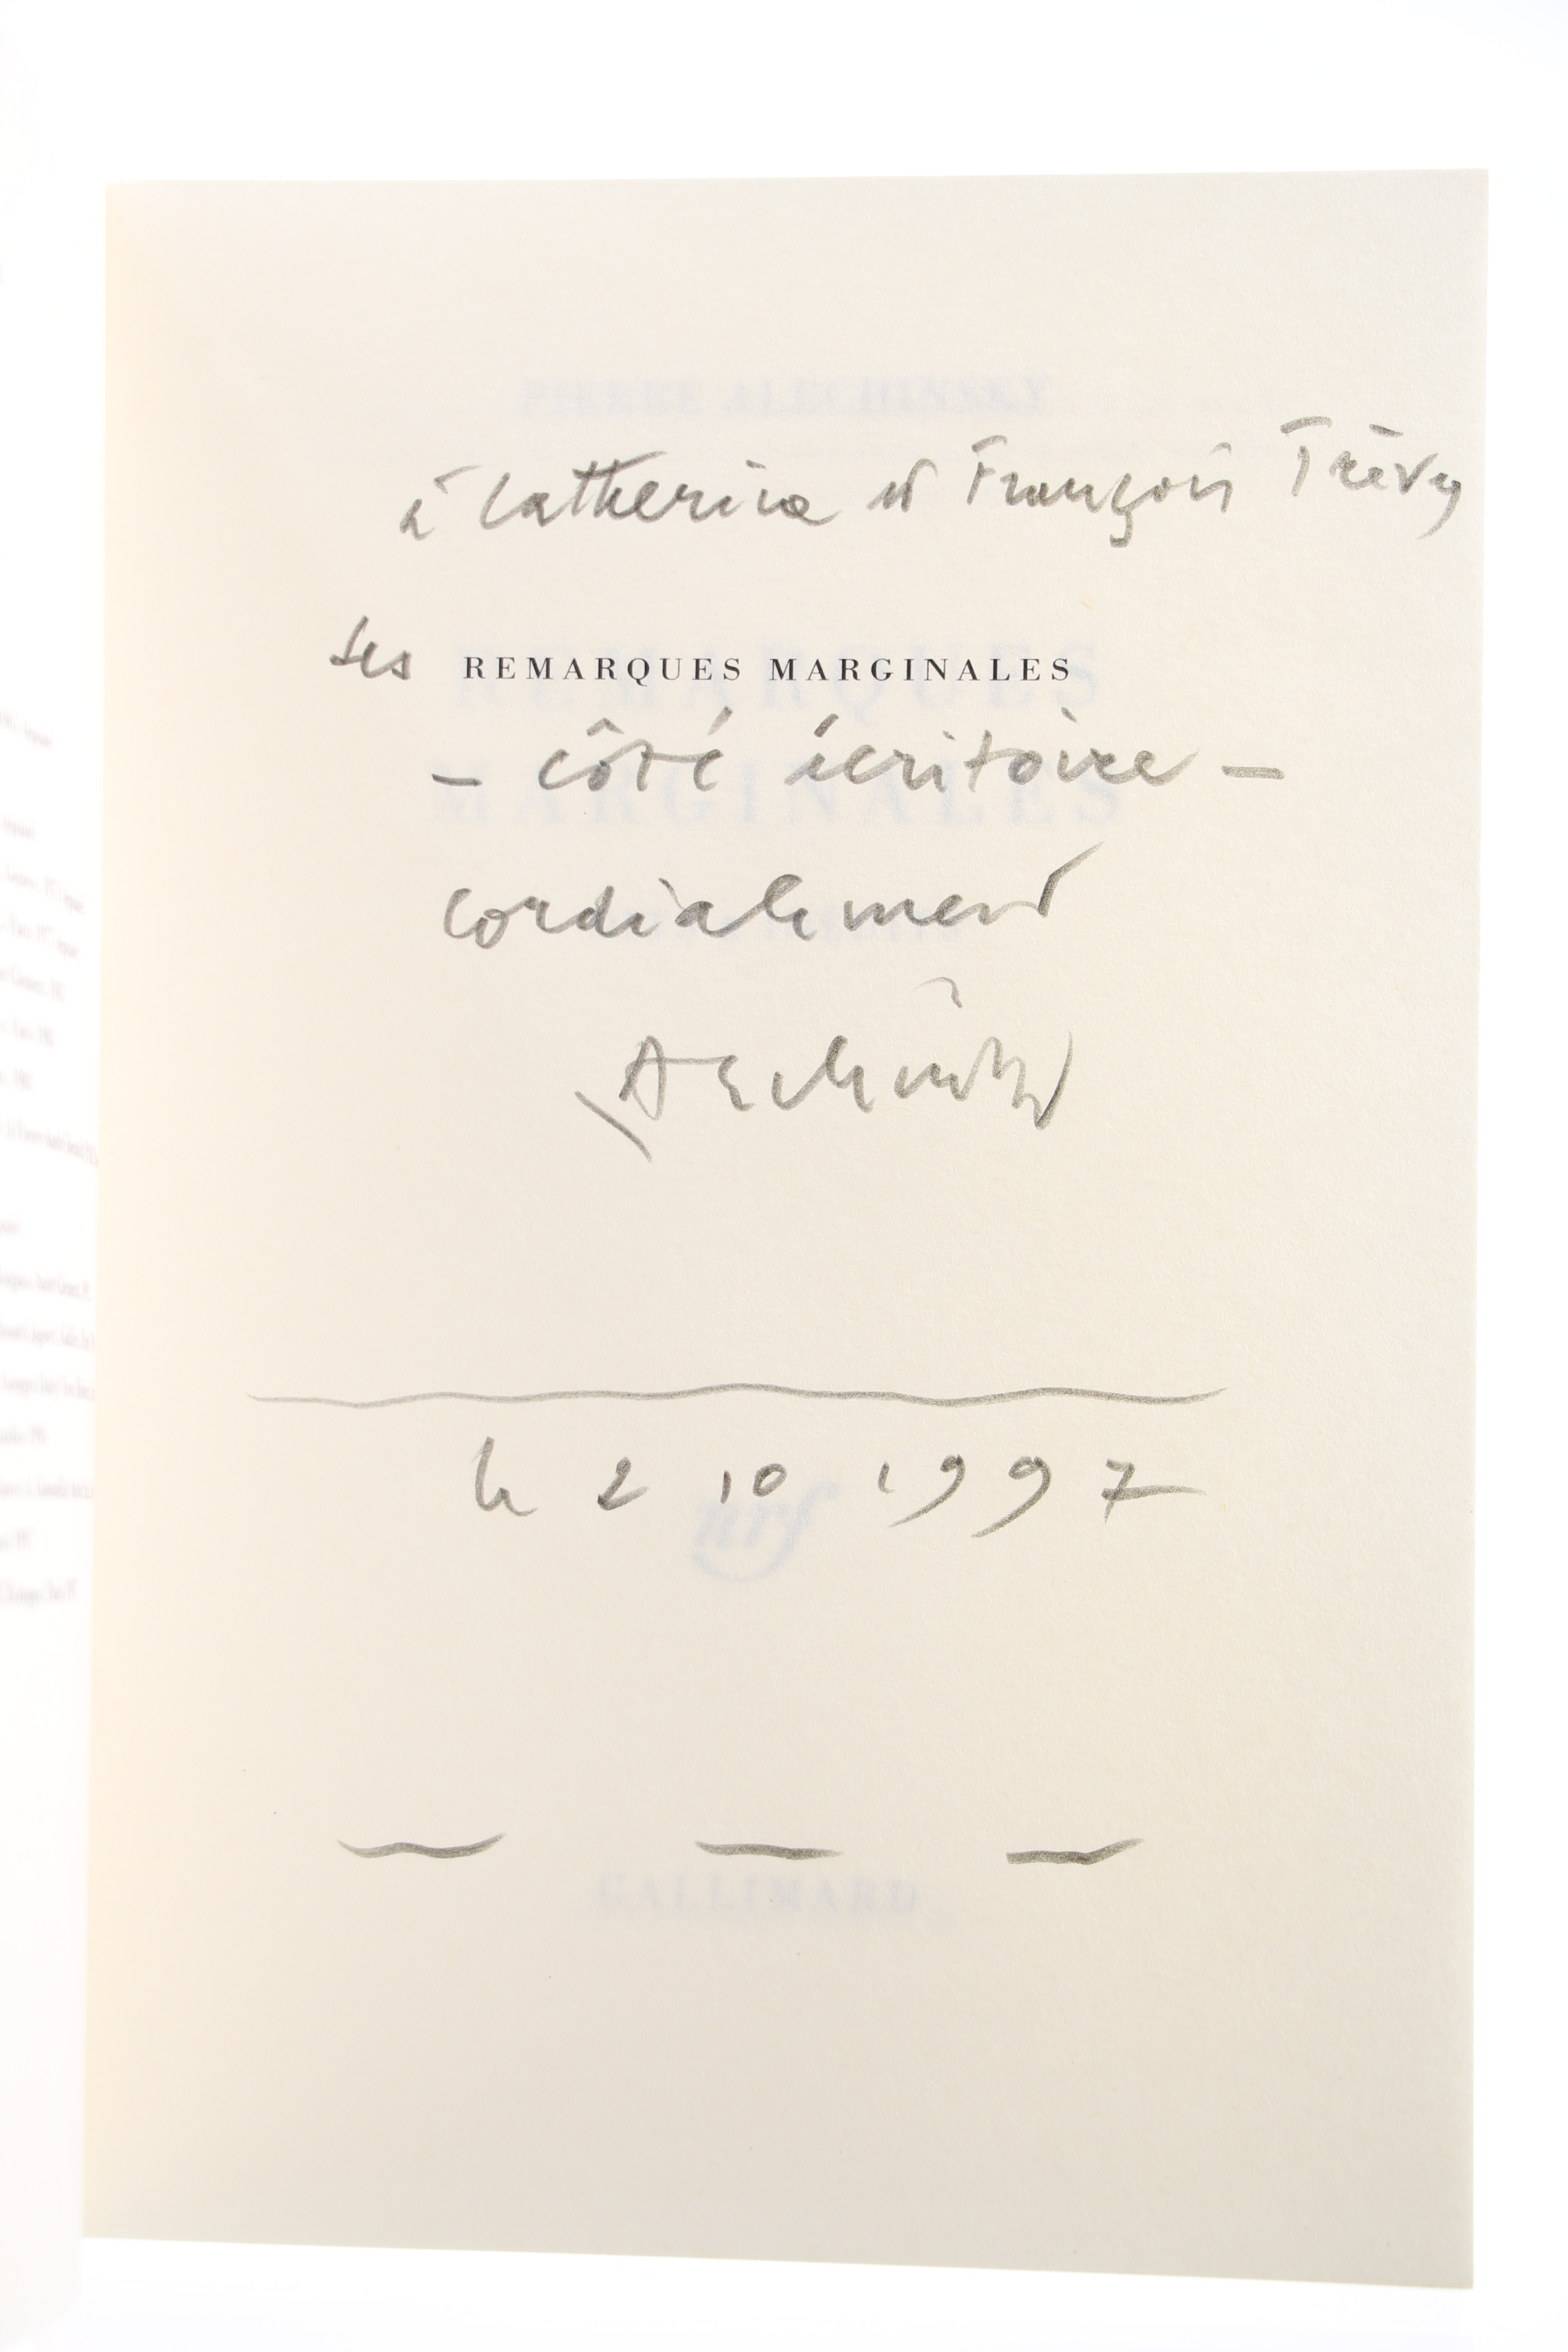 à Catherine et François Trèves
ses REMARQUES MARGINALES
– côté écritoire –
cordialement
Alechinsky
le 2 10 1997
PIERRE ALECHINSKY
REMARQUES
MARGINALES
nrf
GALLIMARD